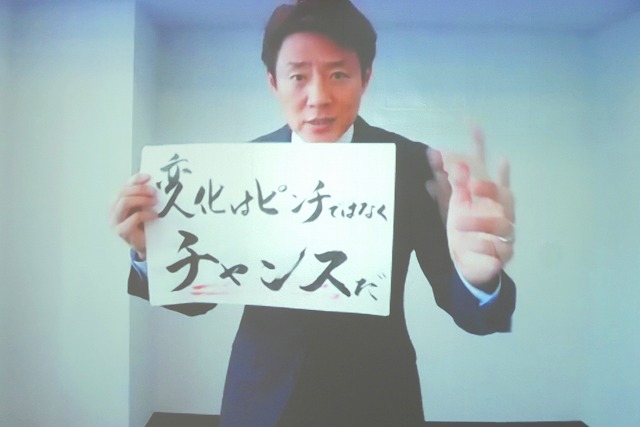 変化はピンチではなく
チャンスだ